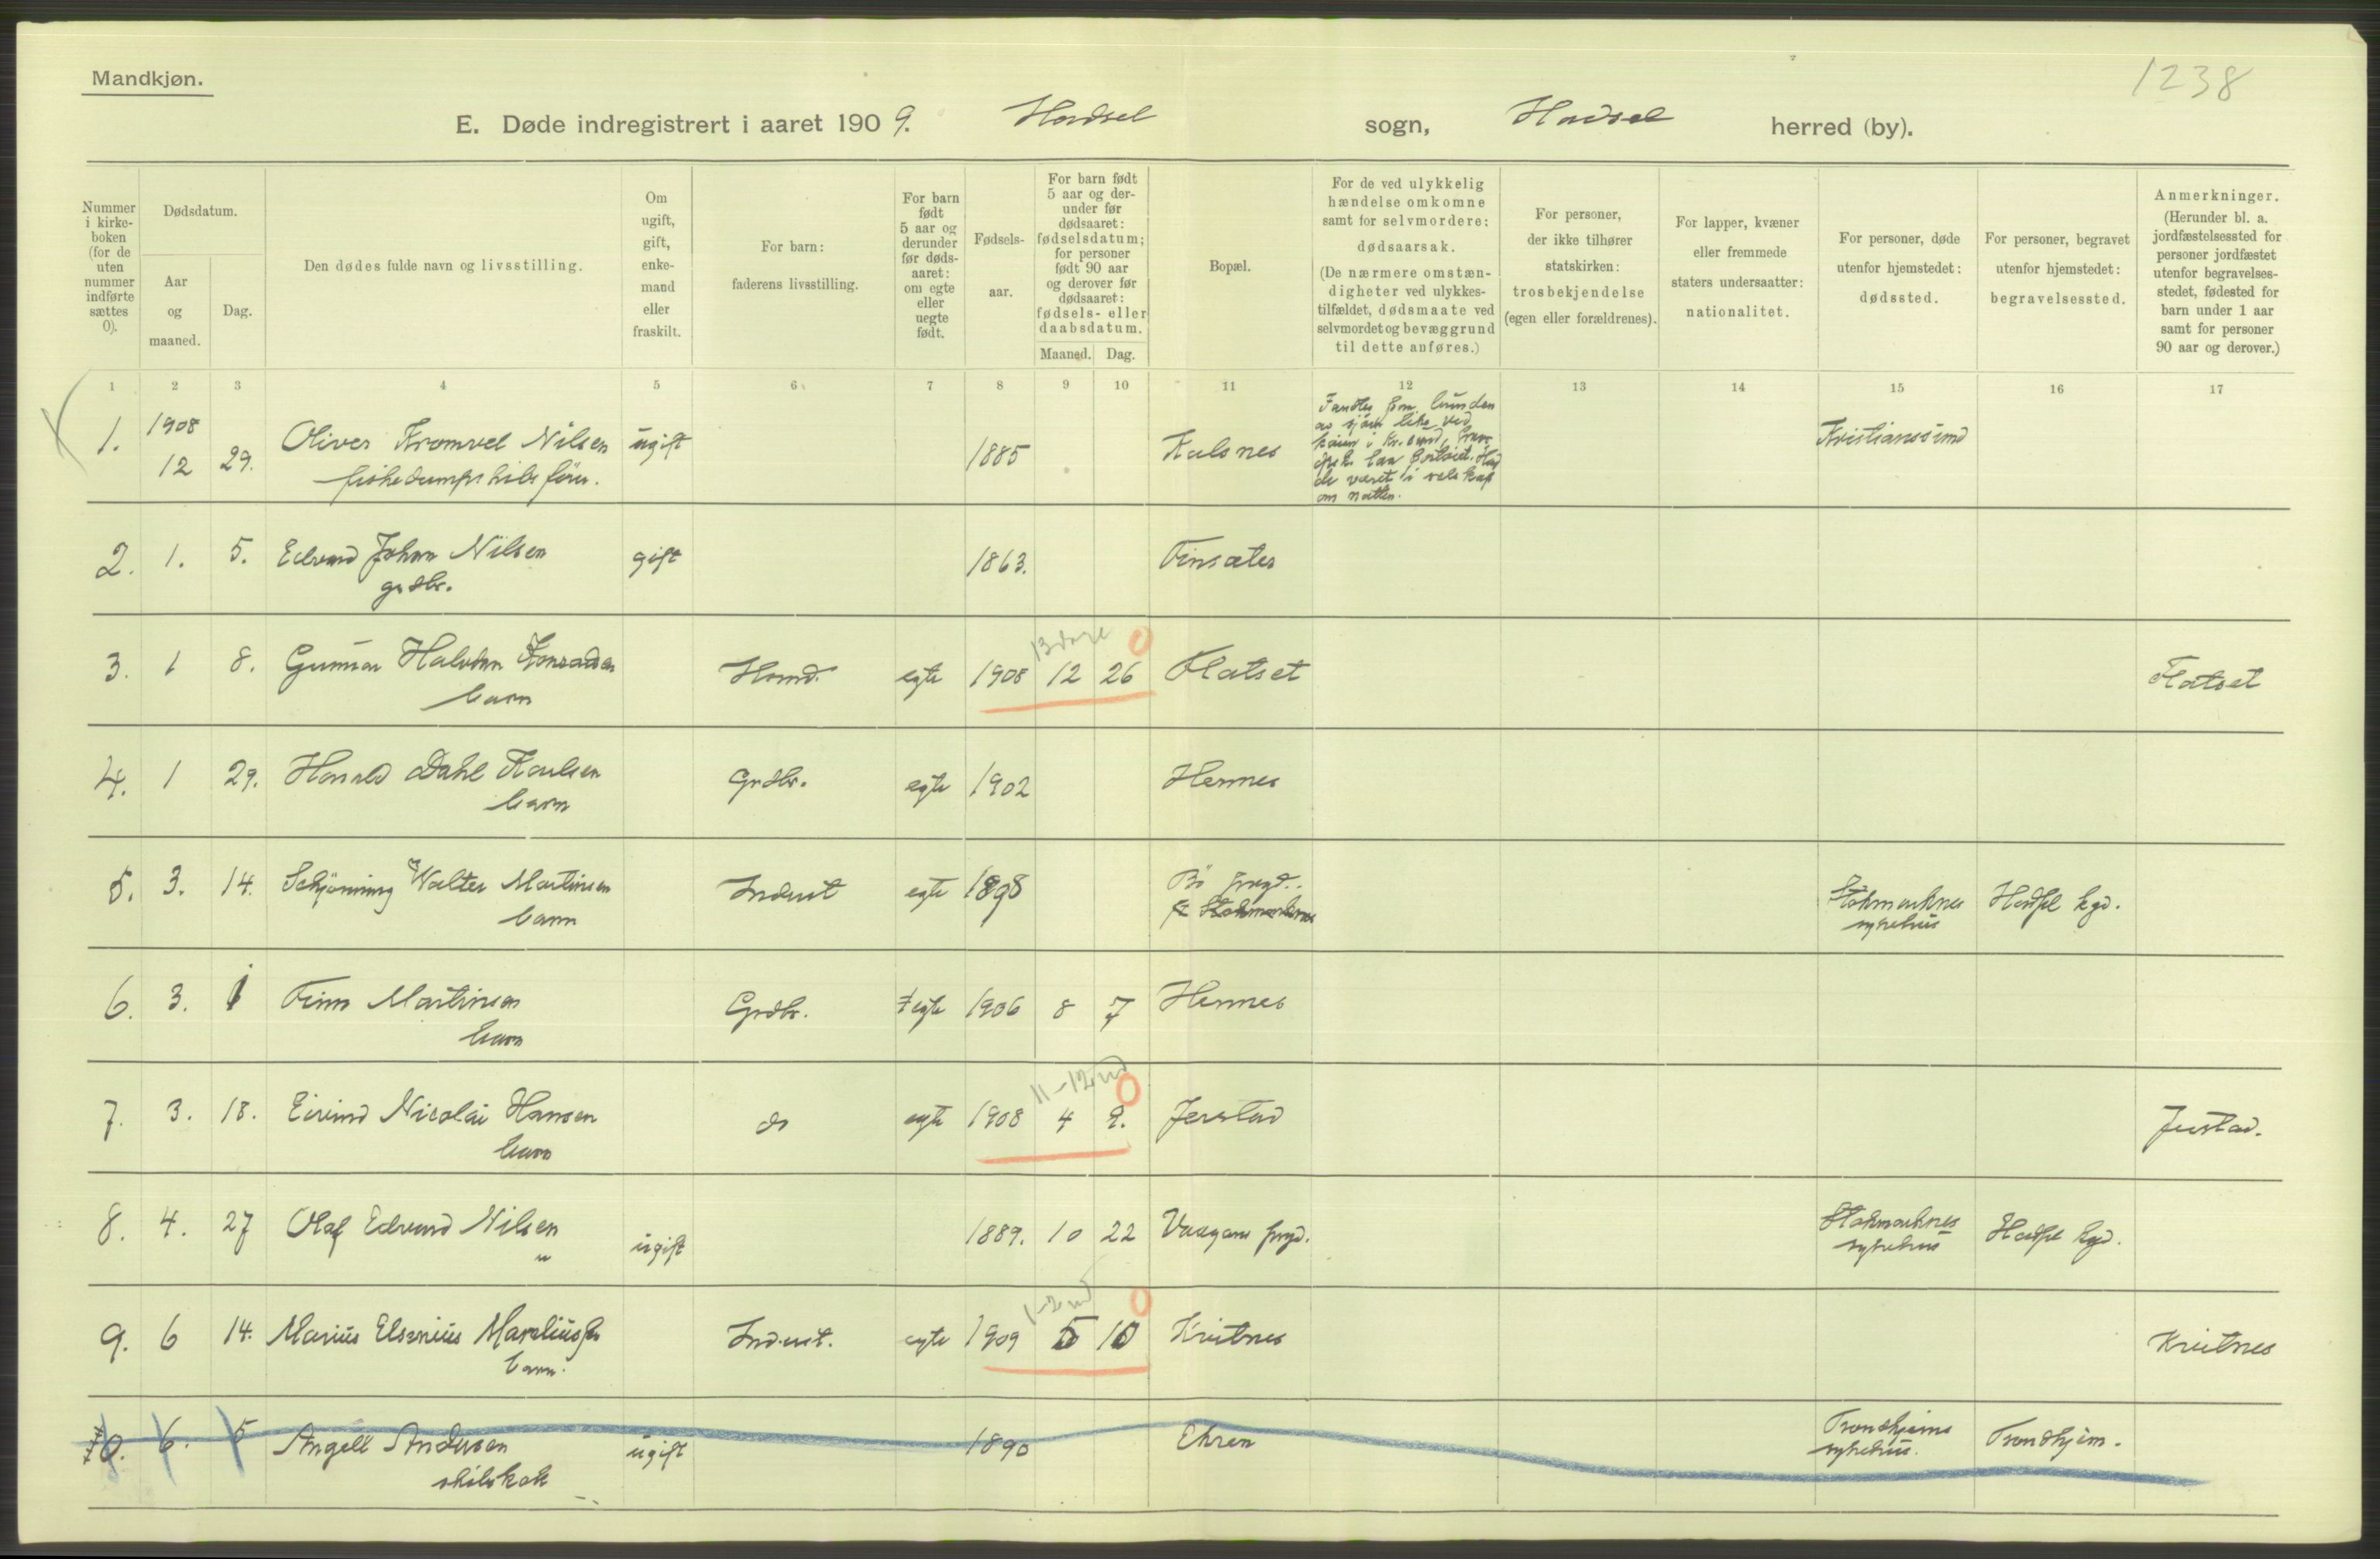 Mandkjøn.
1238
E. Døde indregistrert i aaret 1909. Hadsel sogn, Hadsel herred (by).
Nummer i kirkeboken (for de uten nummer indførte sættes 0).
Dødsdatum.
Aar og maaned.
Dag.
Den dødes fulde navn og livsstilling.
Om ugift, gift, enkemand eller fraskilt.
For barn: faderens livsstilling.
For barn født 5 aar og derunder før dødsaaret: om egte eller uegte født.
Fødselsaar.
For barn født 5 aar og derunder før dødsaaret: fødselsdatum; for personer født 90 aar og derover før dødsaaret: fødsels- eller daabsdatum.
Maaned. Dag.
Bopæl.
For de ved ulykkelig hændelse omkomne samt for selvmordere: dødsaarsak. (De nærmere omstændigheter ved ulykkestilfældet, dødsmaate ved selvmordet og bevæggrund til dette anføres.)
For personer, der ikke tilhører statskirken: trosbekjendelse (egen eller forældrenes).
For lapper, kvæner eller fremmede staters undersaatter: nationalitet.
For personer, døde utenfor hjemstedet: dødssted.
For personer, begravet utenfor hjemstedet: begravelsessted.
Anmerkninger. (Herunder bl. a. jordfæstelsessted for personer jordfæstet utenfor begravelsesstedet, fødested for barn under 1 aar samt for personer 90 aar og derover.)
1 2 3 4 5 6 7 8 9 10 11 12 13 14 15 16 17
1. 1908 12 29. Oliver Kromvel Nilsen ugift 1885 Kalsnes Kristianssund
fiskedampskibsfører.
2. 1. 5. Edvard Johan Nilsen gift 1863. Finsæter
grdbr.
13 dage 0
3. 1 8. Gunnar Halvdan Konradsen Hsmd. egte 1908 12 26 Flatset Flatset
barn
4. 1 29. Harald Dahl Karlsen Grdbr. egte 1902 Hennes
barn
5. 3. 14. Schjønning Walter Martinsen Inderst egte 1898 Bø prgd. Stokmarknes sykehus Hadsel kgd.
barn
6. 3. 1 Finn Martinsen Grdbr. egte 1906 8 7 Hennes
barn
11-12 md 0
7. 3. 18. Eivind Nicolai Hansen do egte 1908 4 2. Jerstad Jerstad.
barn
8. 4. 27 Olaf Edvard Nilsen ugift 1889. 10 22 Vaagans prgd. Stokmarknes sykehus Hadsel kgd.
"
1-2 md 0
9. 6 14. Marius Elsenius Mareliussen Inderst. egte 1909 5 10 Kvitnes Kvitnes
barn.
10. 6. 5 Angell Andersen ugift 1890 Ehren Trondhjems sykehus. Trondhjem.
skibskok